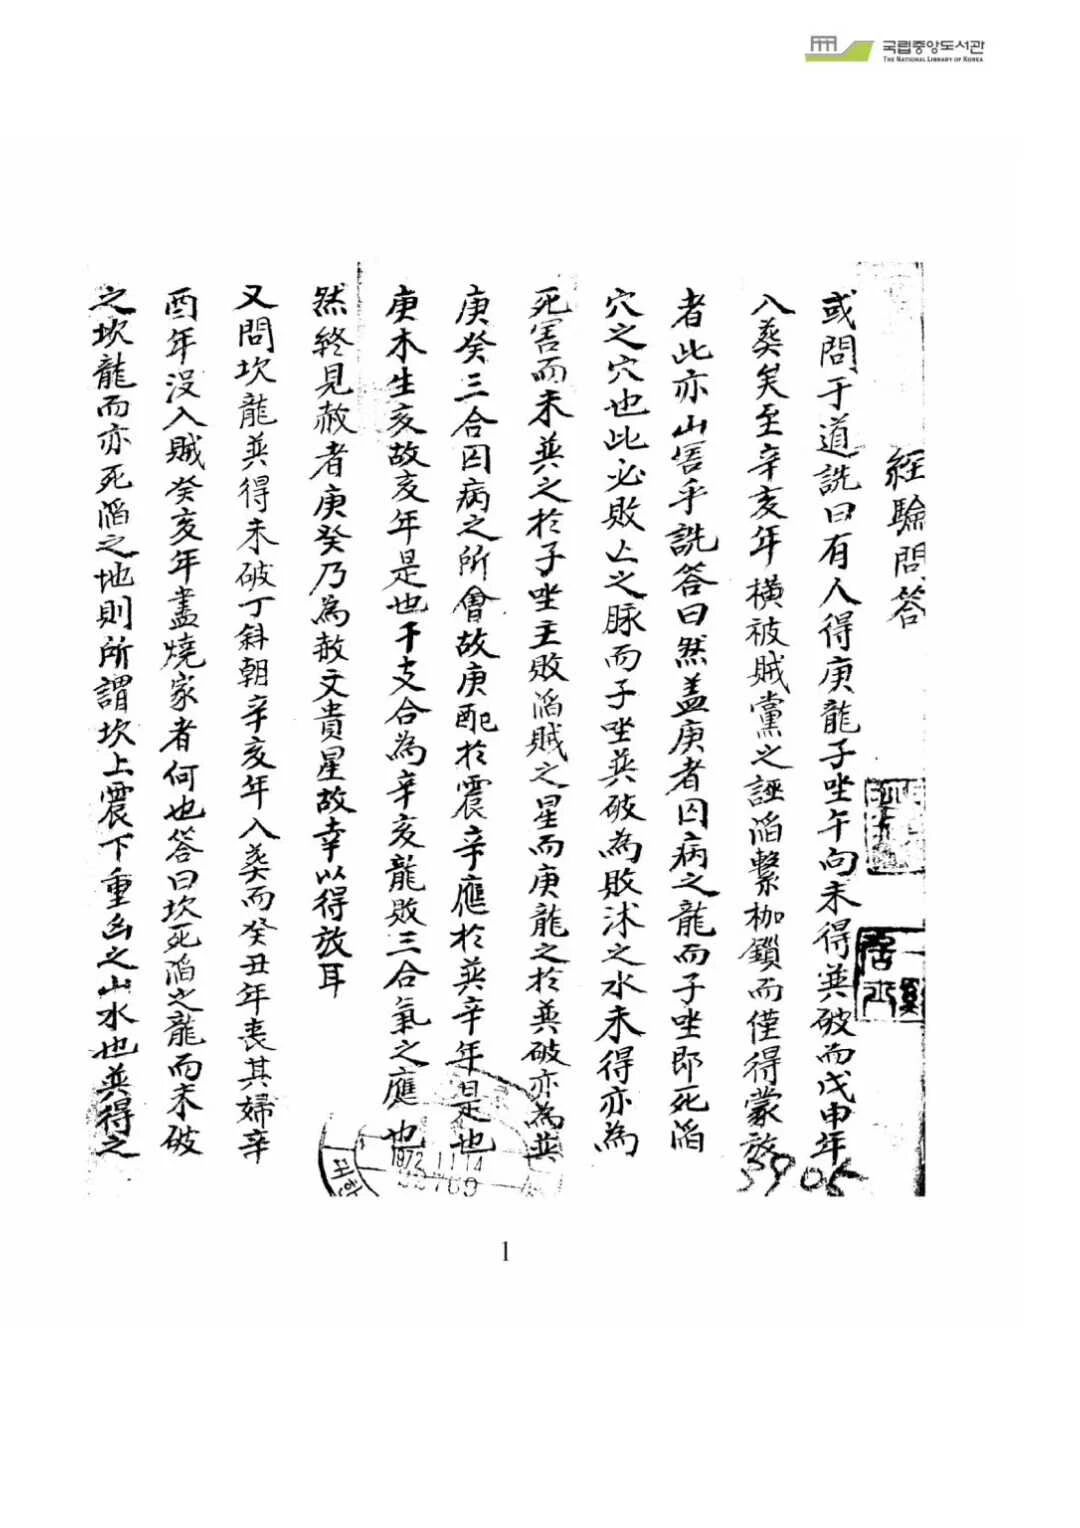 국립중앙도서관
THE NATIONAL LIBRARY OF KOREA
經驗問答
或問于道詵曰有人得庚龍子坐午向未得巽破而戊申年
入葬矣至辛亥年橫被賊黨之誣滔繫枷鎖而僅得蒙赦
者此亦山害乎詵答曰然盖庚者囚病之龍而子坐即死滔
穴之穴也此必敗亡之脉而子坐巽破為敗沭之水未得亦為
死害而未巽之於子坐主敗滔賊之星而庚龍之於巽破亦為巽
庚癸三合囚病之所會故庚配於震辛應於巽辛年是也
庚木生亥故亥年是也干支合為辛亥龍敗三合氣之應也
然終見赦者庚癸乃為赦文貴星故幸以得放耳
又問坎龍巽得未破丁斜朝辛亥年入葬而癸丑年喪其婦辛
酉年沒入賊癸亥年盡燒家者何也答曰坎死滔之龍而未破
之坎龍而亦死滔之地則所謂坎上震下重凶之山水也巽得之
3905
1972.11.14
1